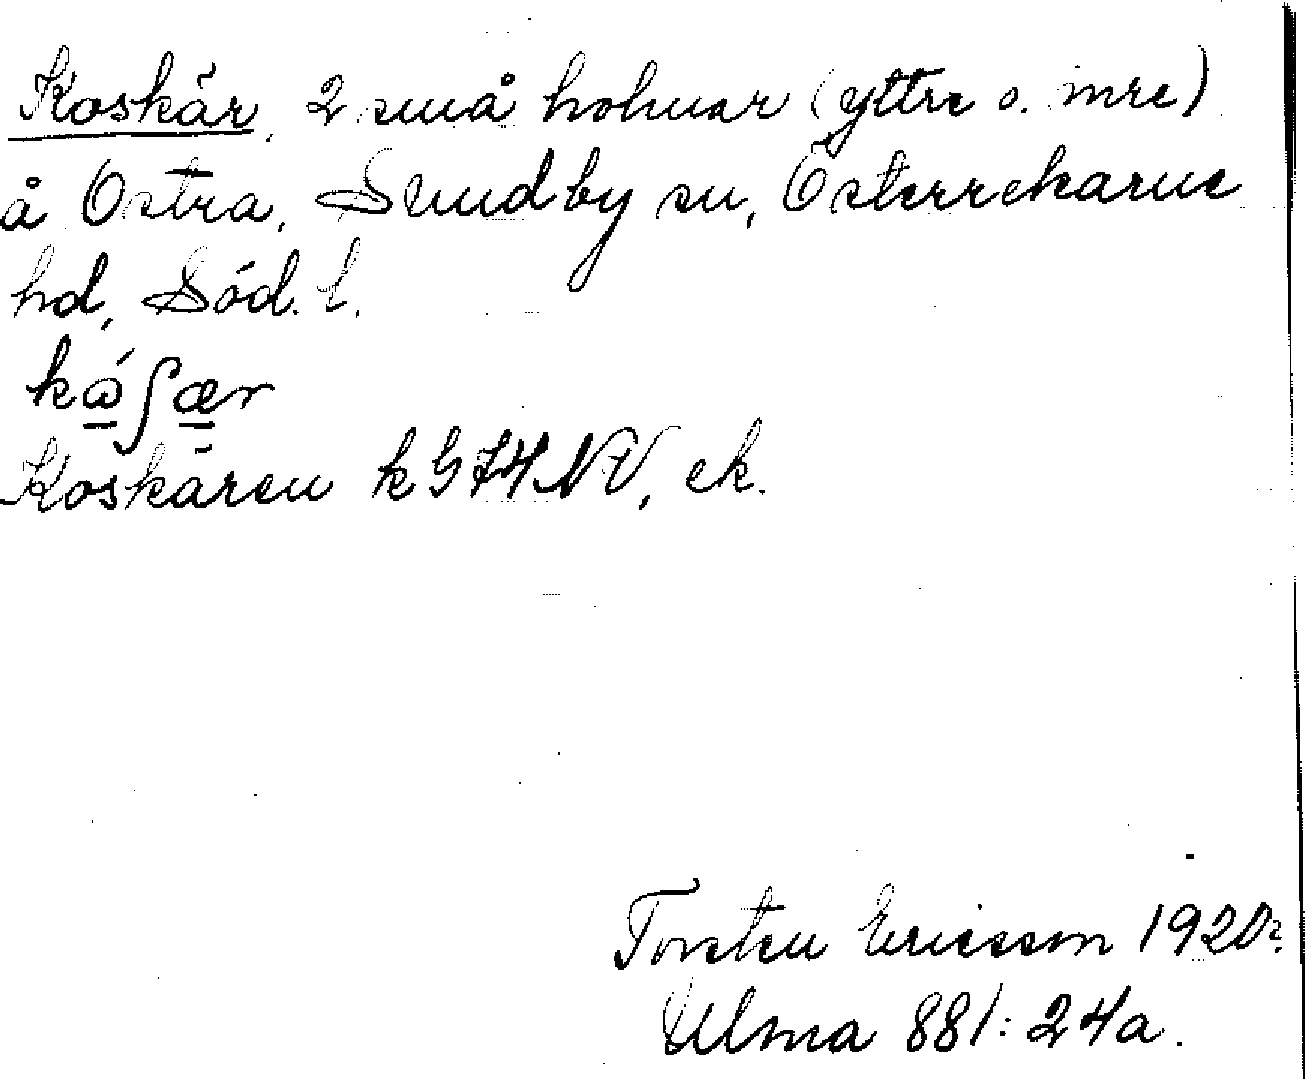 Koskär, 2 små holmar (yttre o. inre)
å Östra, Sundby sn, Österrekarne
hd, Söd. l.
Koskären k G 74 NV, ek.
Torsten Ericsson 1920?
Ulma 881:24a.